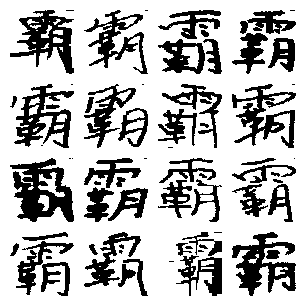 霸霸霸霸
霸霸霸霸
霸霸霸霸
霸霸霸霸